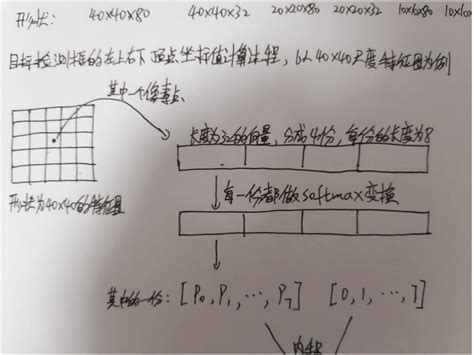 形状: 40×40×80 40×40×32 20×20×80 20×20×32 10×10×80 10×10
目标检测框的左上右下顶点坐标值计算过程,以40×40尺度特征图为例
其中一个像素点
长度为32的向量,分成4份,每份的长度为8
每一份都做softmax变换
形状为40×40的特征图
其中的一份: [P0,P1,…,P7] [0,1,…,7]
内积